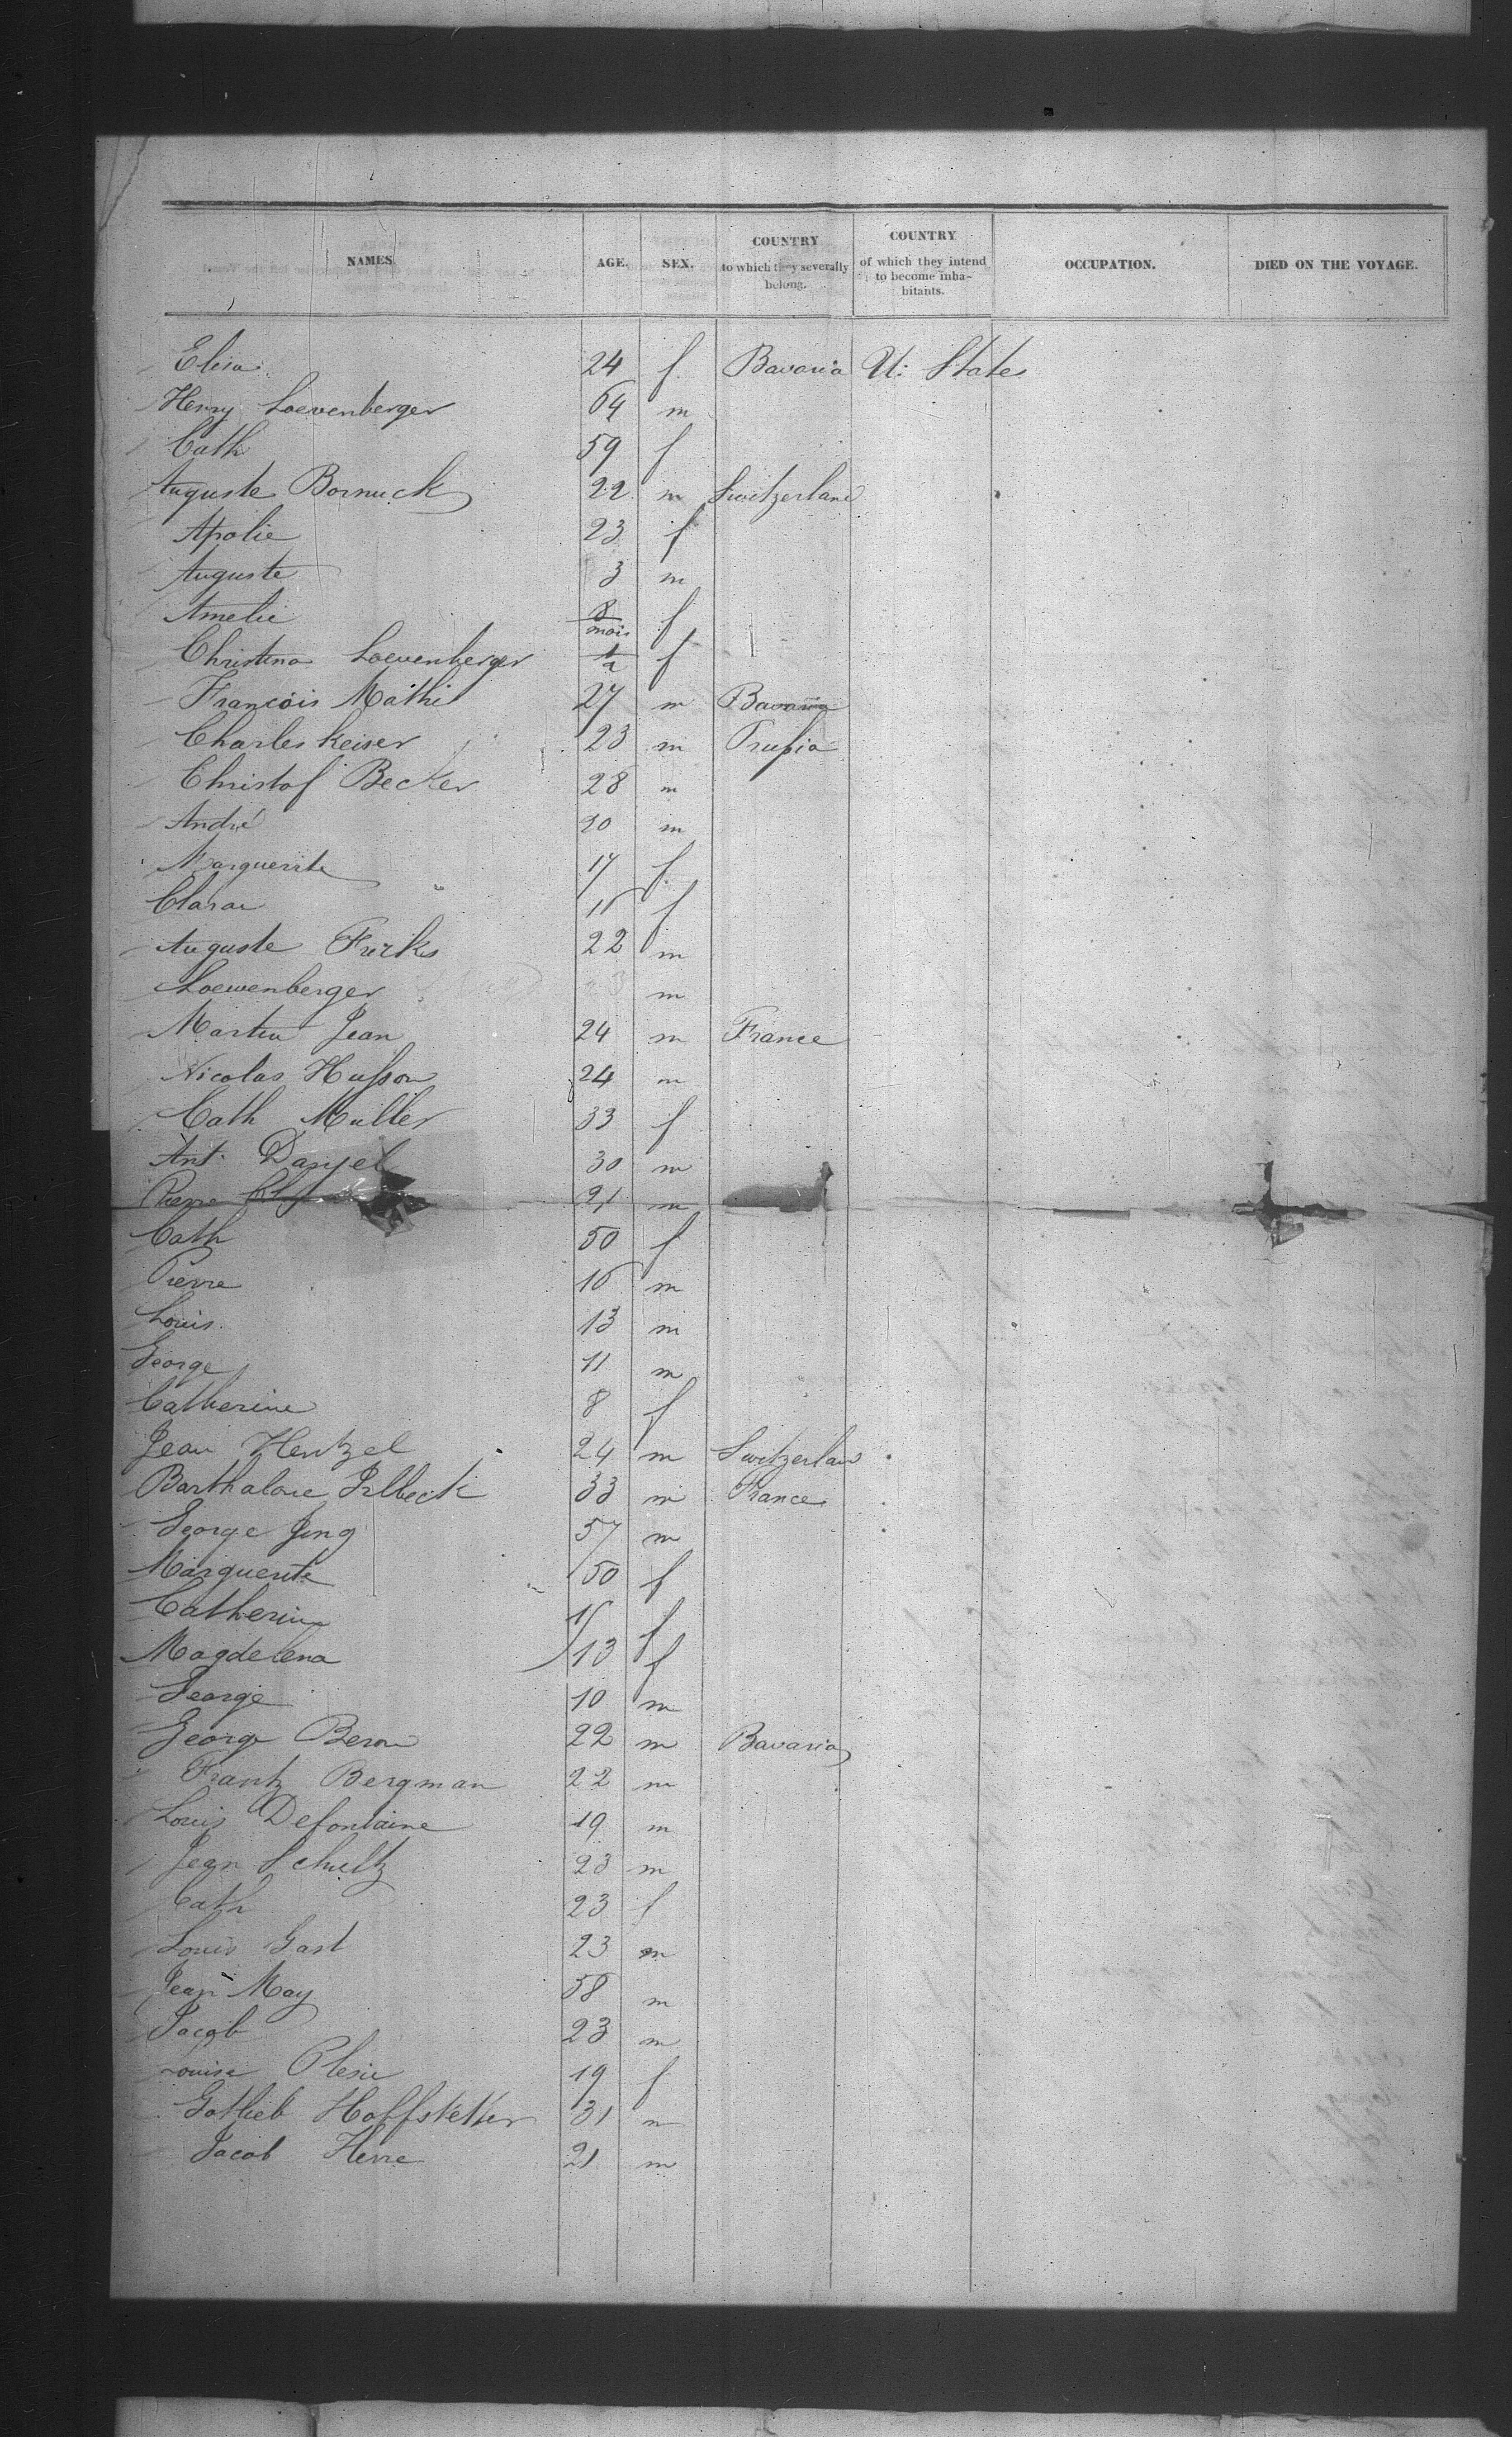 NAMES. AGE. SEX. COUNTRY to which they severally belong. COUNTRY of which they intend to become inhabitants. OCCUPATION. DIED ON THE VOYAGE.
Elisa 24 f. Bavaria U: States
Henry Loevenberger 64 m
Cath 59 f
Auguste Bornuck 22 m Switzerland
Apolie 23 f
Auguste 3 m
Amelie 8 mois f
Christina Loevenberger 1/2 f
François Mathi 27 m Bavaria
Charles Keiser 23 m Prussia
Christof Becker 28 m
André 20 m
Marguerite 17 f.
Clara f
Auguste Furks 22 m
Loewenberger m
Martin Jean 24 m France
Nicolas Husson 24 m
Cath Muller 33 f
Ant. 30 m
Pierre 21 m
Cath 50 f
Pierre 16 m
Louis. 13 m
George 11 m
Catherine 8 f
Jean Hentzel 24 m Switzerland
33 m France
George Jung 57 m
Marguerite 50 f
Catherine f
Magdelena 13 f
George 10 m
George 22 m Bavaria
Frantz Bergman 22 m
Louis Defontaine 19 m
Jean Schultz 23 m
Cath 23 f
Louis Gast 23 m
Jean May 58 m
Jacob 23 m
Louise 19 f
Gotlieb Hoffstetter 31 m
Jacob Herre 21 m